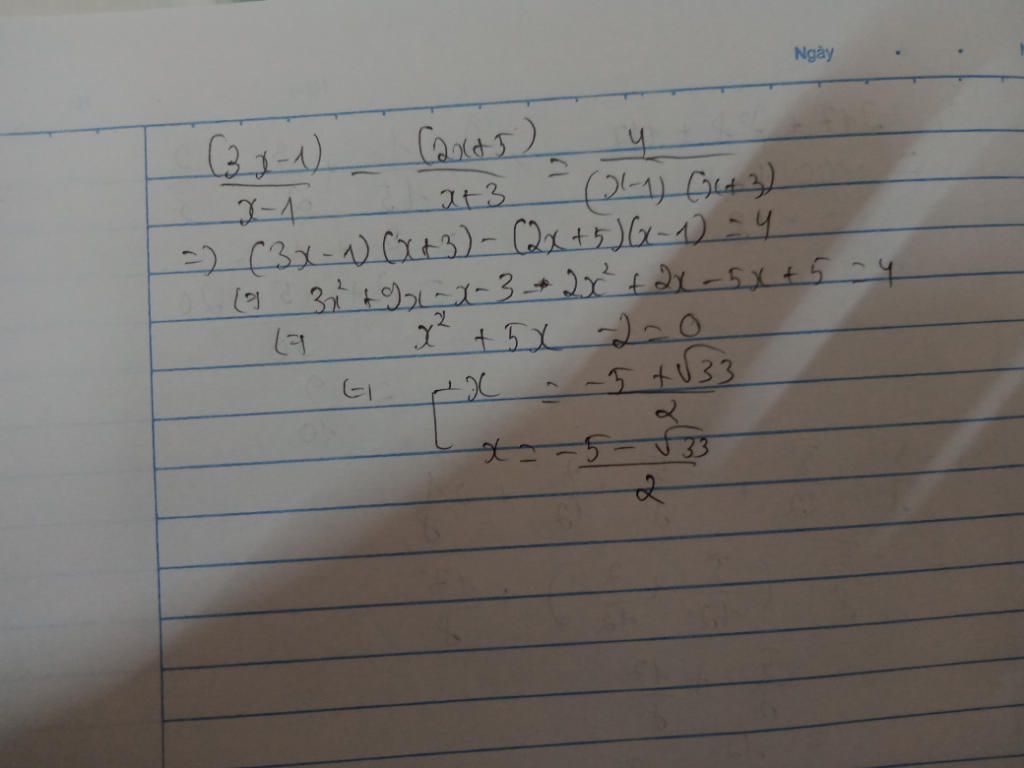 Ngày
(3x-1)/(x-1) - (2x+5)/(x+3) = 4/((x-1)(x+3))
=> (3x-1)(x+3) - (2x+5)(x-1) = 4
(=) 3x² + 9x - x - 3 - 2x² + 2x - 5x + 5 = 4
(=) x² + 5x - 2 = 0
(=) [ x = (-5 + √33)/2
x = (-5 - √33)/2